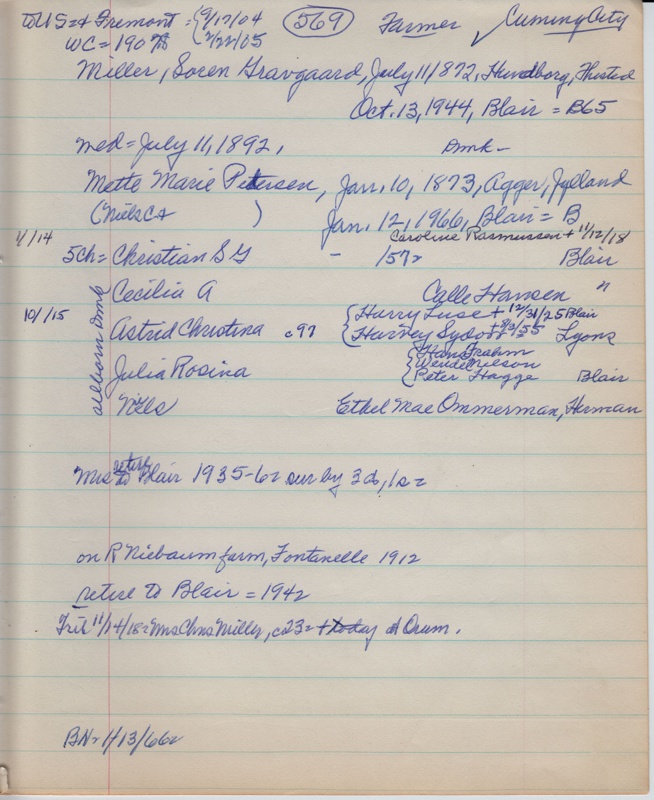 to US=+ Fremont = {9/17/04 569 Farmer ✓ Cuming City
WC=1907 {2/22/05
Miller, Soren Gravgaard, July 11/1872, Hundborg, Thisted
Oct. 13, 1944, Blair = B65
med=July 11, 1892, Dmk-
Mette Marie Petersen, Jan. 10, 1873, Agger, Jylland
(Niels C+ ) Jan. 12, 1966, Blair = B
1/14 Caroline Rasmussen + 11/12/18
5ch= Christian S G - /57= Blair
all born Dmk
Cecilia A Calle Hansen "
10/15 {Harry Luse + 12/31/25 Blair
Astrid Christina c97 {Harvey + 9/3/55 Lyons
{Hans Frahm
Julia Rosina {Wendel Nelson
{Peter Hagge Blair
Nels Ethel Mae Ommerman, Herman
Mrs retire to Blair 1935-6= sur by 3d, 1s=
on R Niebaum farm, Fontanelle 1912
retire to Blair = 1942
Trib 11/14/18= Mrs Chris Miller, c23= + today at Orum.
BN= 1/13/66=